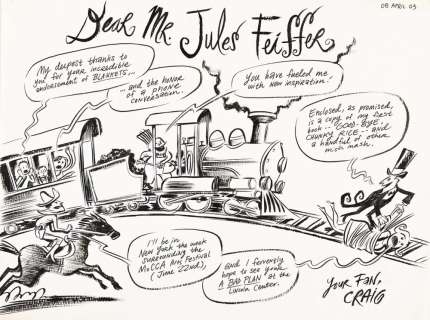 08 APRIL 03
Dear Mr. Jules Feiffer
My deepest thanks to
you for your incredible
endorsement of BLANKETS...
...and the honor
of a phone
conversation.
You have fueled me
with new inspiration!
Enclosed, as promised,
is a copy of my first
book.. GOOD-BYE,
CHUNKY RICE.. and
a handful of other
mish mash.
I'll be in
New York the week
surrounding the
MoCCA Art Festival
(June 22nd),
And I fervently
hope to see your
A BAD PLAN at the
Lincoln Center.
Your Fan,
CRAIG